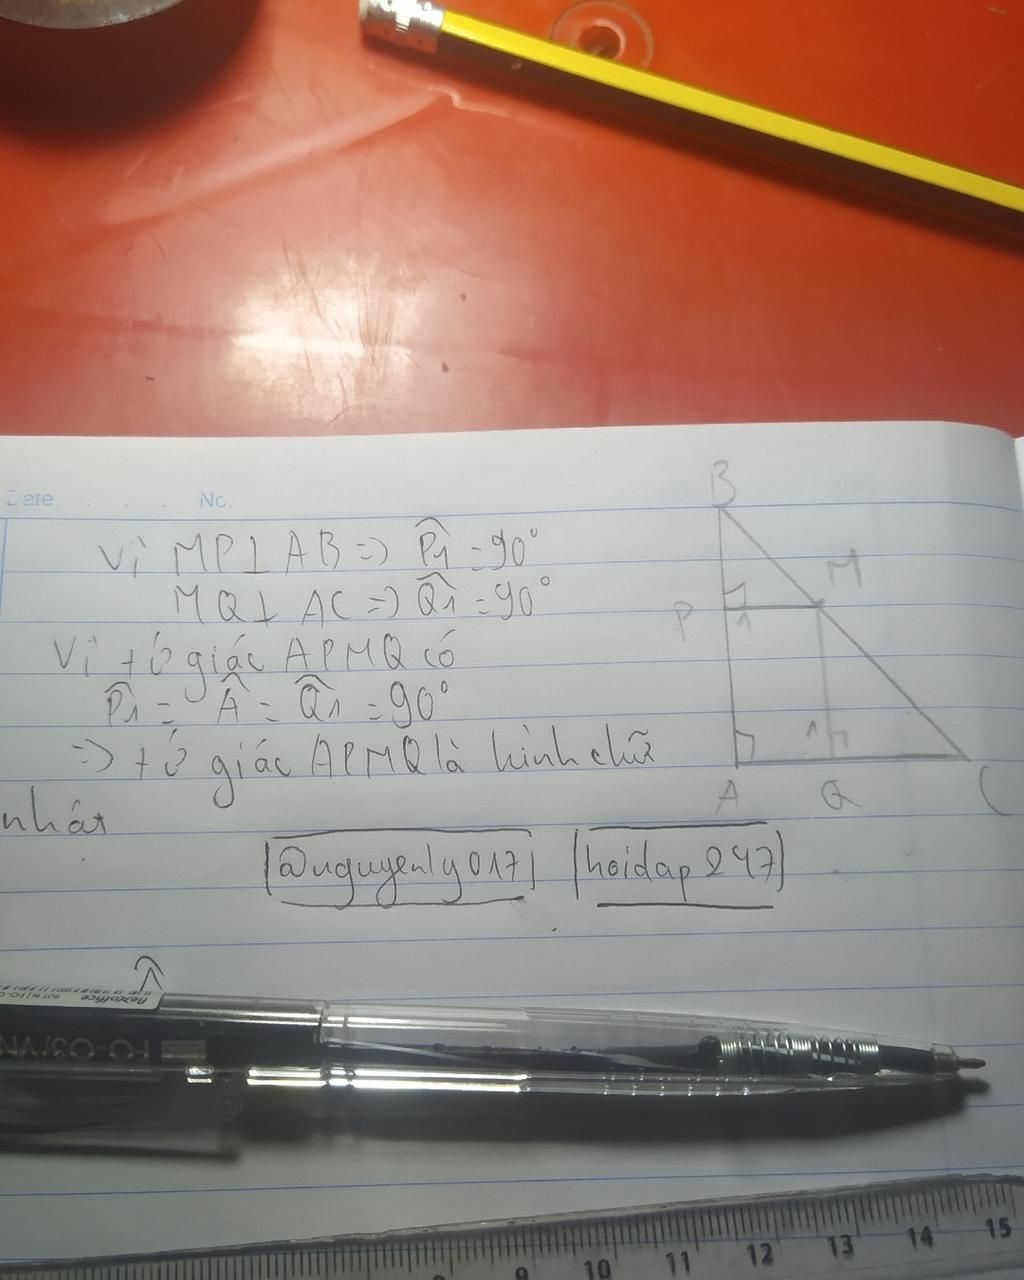 Date No.
Vì MP⊥AB => P̂1 = 90°
MQ⊥AC => Q̂1 = 90°
Vì tứ giác APMQ có
P̂1 = Â = Q̂1 = 90°
=> tứ giác APMQ là hình chữ
nhật
B
M
P
1
1
A
Q
C
@nguyenly017 hoidap247
flexoffice
FO-03/VN
9 10 11 12 13 14 15